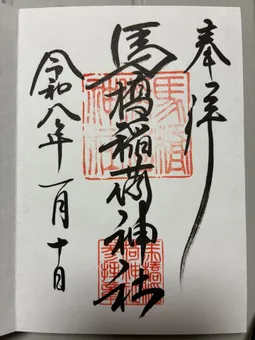 奉拝
馬橋稲荷神社
令和八年一月十日